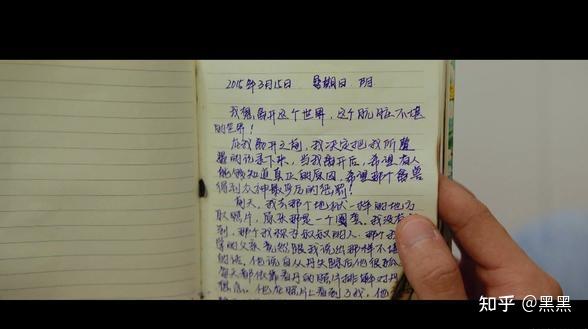 2015年3月15日 星期日 阴
我想离开这个世界，这个肮脏不堪
的世界！
在我离开之前，我决定把我所遭
遇的记录下来，当我离开后，希望有人
能够知道真正的原因，希望那个禽兽
得到众神最后的惩罚！
前天，我去那个地狱一样的地方
取照片，原来那是一个圈套，我没有
到，那个我称为叔叔的人，那个
学的父亲竟然跟我说出那样不堪
的话，他说自从丹失踪后他很孤
每天都依靠看丹的照片排解对丹
想念，他在照片上看到了我，他
知乎 @黑黑